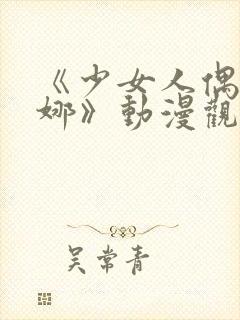 《少女人偶
娜》動漫觀
吴常青